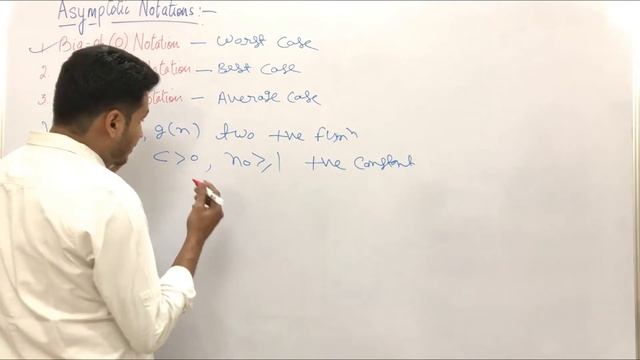 Asymptotic Notations:-
Big-oh (O) Notation - Worst Case
2. Notation - Best Case
3. Notation - Average Case
, g(n) two +ve
C>0, n0≥1 +ve constant